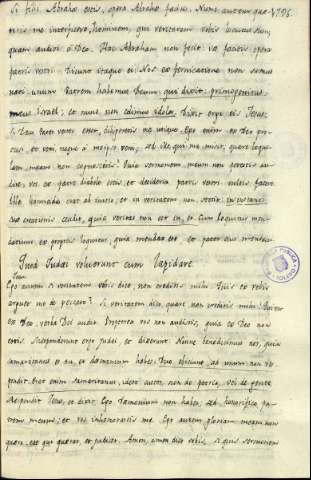 Si filii Abrahæ estis, opera Abrahæ facite. Nunc autem quæ- 1796.
ritis me interficere, hominem, qui veritatem vobis locutus sum,
quam audivi a Deo. Hoc Abraham non fecit. vos facitis opera
patris vestri. Dixerunt itaque ei: Nos ex fornicatione non sumus
nati: unum Patrem habemus Deum; qui dixit: primogenitus
meus Israel; et nunc non colimus idola. Dixit ergo eis Jesus:
Si Deus pater vester esset, diligeretis me utique. Ego enim ex Deo pro-
cessi, et veni, neque a meipso veni, sed ille me misit, quare loque-
lam meam non cognoscitis? Quia sermonem meum non potestis au-
dire, vos ex patre diabolo estis; et desideria patris vestri vultis facere
ille homicida erat ab initio, et in veritate non stetit,
quia veritas non est in eo. Cum loquitur men-
dacium ex propriis loquitur, quia mendax est et pater ejus
Quod Judæi voluerunt eum lapidare.
Ego autem si veritatem vobis dico, non creditis mihi. Quis ex vobis
arguet me de peccato? Si veritatem dico, quare non creditis mihi? Qui est
ex Deo, verba Dei audit. Propterea vos non auditis, quia ex Deo non
estis. Responderunt ergo Judæi, et dixerunt: Nonne benedicimus nos, quia
samaritanus es tu, et dæmonium habes? Duo objiciunt, ad unum non res-
pondit
Respondit Jesus, et dixit: Ego dæmonium non habeo; sed honorifico pa-
trem meum; et vos inhonoratis me. Ego autem gloriam meam non
quæro, est qui quærat, et judicet. Amen, amen dico vobis, si quis sermonem